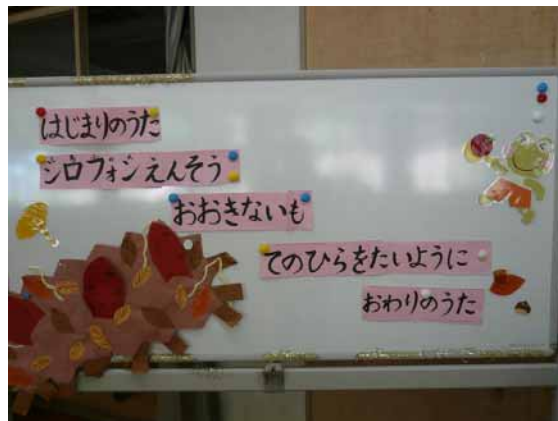 はじまりのうた
シロフォンえんそう
おおきないも
てのひらをたいように
おわりのうた